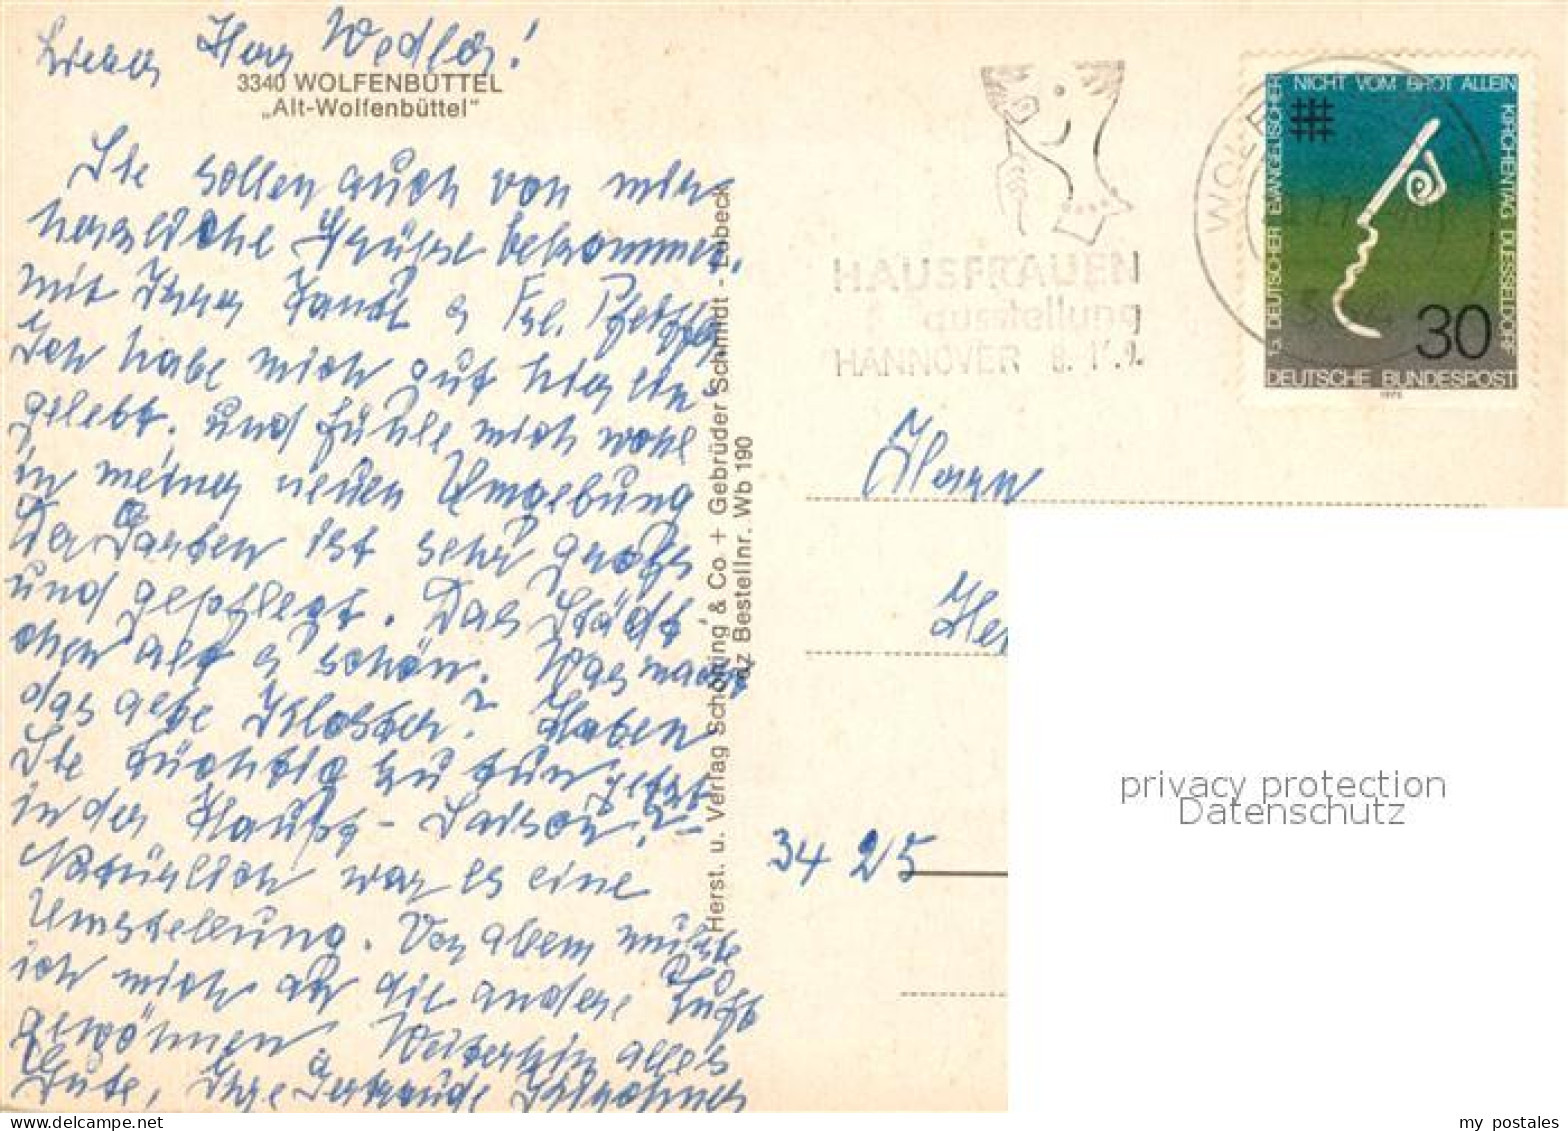 Lieber Herr Wedler!
3340 WOLFENBÜTTEL
„Alt-Wolfenbüttel"
Sie sollen auch von mir
herzliche Grüße bekommen.
mit Ihrer Tante u Frl.
Ich habe mich gut hier ein
gelebt. und fühle mich wohl
in meiner neuen Umgebung
Der Garten ist sehr groß
und gepflegt. Das Städt
chen alt u schön. Was macht
das alte Kloster? Haben
Sie tüchtig zu tun jetzt
in der Haupt-Saison?
Natürlich war es eine
Umstellung. Vor allem müßte
ich mich an die andere Luft
gewöhnen Weiterhin alles
Gute, Ihre Gertrude
Herst. u. Verlag Schöning & Co + Gebrüder Schmidt - Lübeck
Bestellnr. Wb 190
HAUSFRAUEN
ausstellung
HANNOVER
15. DEUTSCHER EVANGELISCHER
NICHT VOM BROT ALLEIN
KIRCHENTAG DUESSELDORF
30
DEUTSCHE BUNDESPOST
1973
Herrn
34 25
privacy protection
Datenschutz
my postales